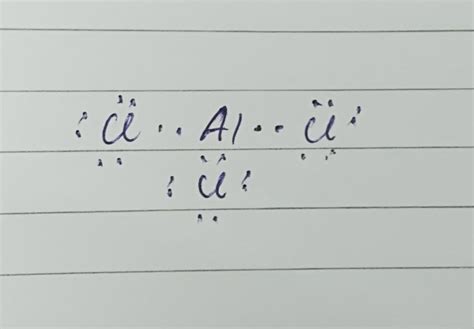 :Cl·· Al ··Cl:
:Cl: